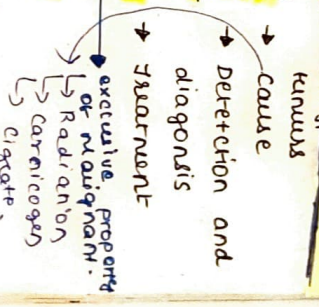 cause
Detetction and
diagonsis
Treatment
exclusive property
of Malignant.
Radiation
Carnicogen